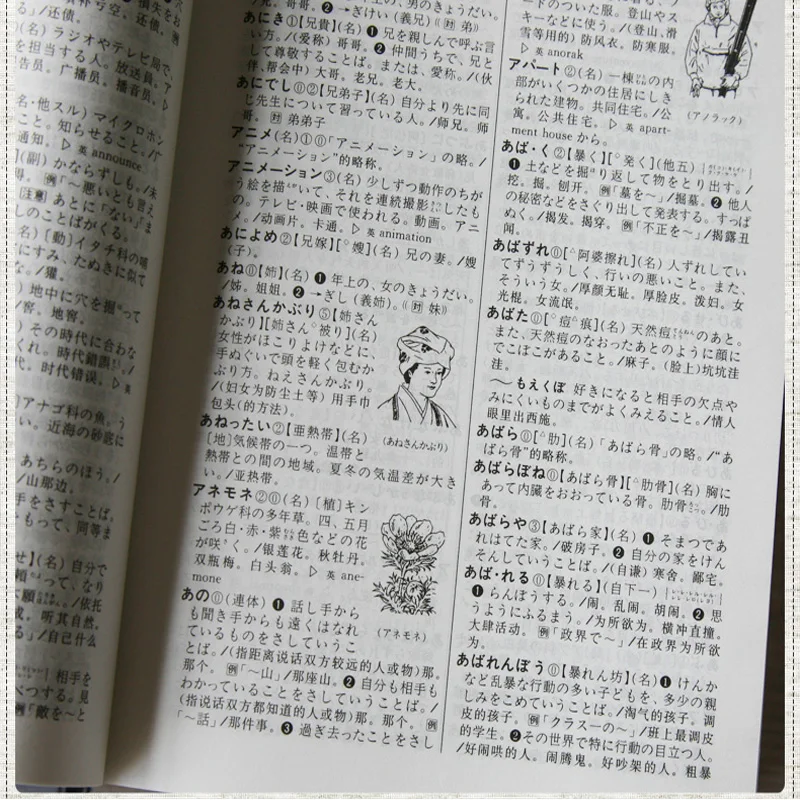 る」/还债。
名)ラジオやテレビ局で、
を担当する人。放送員。ア
告员。广播员。播音员。
名・他スル)マイクロホン
こと。知らせること。/广
通知。▷ 英 announce
(副)かならずしも。/未
得。例「~悪いとも言え
注意 あとに「ない」ま
しのことばがくる。
名)[動]イタチ科の哺
にすみ、たぬきに似て
な。/獾。
地中に穴を掘って
/窖。地窖。
その時代に合わな
代。时代错误。▷ 英
アナゴ科の魚。う
い。近海の砂底に
あちらのほう。/
/山那边。
手をさすことば。
もって、同等ま
自分で
って、なり
/依托
成。听其自然。
る」/自己什么
相手を
べつする。見
例「敵を~と
兄哥。哥哥。❷ →ぎけい(義兄)(対 弟)
あにき①【兄貴】(名)❶ 兄を親しんで呼ぶ言
い方。/(爱称)哥哥。❷ 仲間うちで、兄と
して尊敬することば。または、愛称。/(伙
伴、帮会中)大哥。老兄。老大。
あにでし⓪②【兄弟子】(名)自分より先に同
じ先生について習っている人。/师兄。师
哥。対 弟弟子
アニメ(名)①⓪「アニメーション」の略。/
“アニメーション”的略称。
アニメーション③(名)少しずつ動作のちが
う絵を描いて、それを連続撮影したも
の。テレビ・映画で使われる。動画。アニ
メ。/动画片。卡通。▷ 英 animation
あによめ②【兄嫁】[°嫂](名)兄の妻。/嫂
(子)。
あね⓪【姉】(名)❶ 年上の、女のきょうだい。
/姊。姐姐。❷ →ぎし(義姉)。(対 妹)
あねさんかぶり⑤【姉さん
かぶり】[姉さん°被り](名)
女性がほこりよけなどに、
手ぬぐいで頭を軽く包むか
ぶり方。ねえさんかぶり。
/(妇女为防尘土等)用手巾
包头(的方法)。
(あねさんかぶり)
あねったい②【亜熱帯】(名)
[地]気候帯の一つ。温帯と
熱帯との間の地域。夏冬の気温差が大き
い。/亚热带。
アネモネ②⓪(名)[植]キン
ポウゲ科の多年草。四、五月
ごろ白・赤・紫色などの花
が咲く。/银莲花。秋牡丹。
双瓶梅。白头翁。▷ 英 ane-
mone
(アネモネ)
あの⓪(連体)❶ 話し手から
も聞き手からも遠くはなれ
ているものをさしていうこ
とば。/(指距离说话双方较远的人或物)那。
那个。例「~山」/那座山。❷ 自分も相手も
わかっていることをさしていうことば。/
(指说话双方都知道的人或物)那。那个。例
「~話」/那件事。❸ 過ぎ去ったことをさし
ードのついた服。登山やス
キーなどに使う。/(登山、滑
雪等用的)防风衣。防寒服。
▷ 英 anorak
(アノラック)
アパート②(名)一棟の内
部がいくつかの住居にしき
られた建物。共同住宅。/公
寓。公共住宅。▷ 英 apart-
ment house から。
あば・く②【暴く】[°発く](他五)
❶ 土などを掘り返して物をとり出す。/
挖。掘。刨开。例「墓を~」/掘墓。❷ 他人
の秘密などをさぐり出して発表する。すっぱ
ぬく。/揭发。揭穿。例「不正を~」/揭露丑
闻。
あばずれ⓪[△阿婆擦れ](名)人ずれしてい
てずうずうしく、行いの悪いこと。また、
そういう女。/厚颜无耻。厚脸皮。泼妇。女
光棍。女流氓。
あばた⓪[°痘△痕](名)天然痘のあと。
また、天然痘のなおったあとのように顔に
でこぼこがあること。/麻子。(脸上)坑坑洼
洼。
~もえくぼ 好きになると相手の欠点や
みにくいものまでがよくみえること。/情人
眼里出西施。
あばら⓪[△肋](名)「あばら骨」の略。/“あ
ばら骨”的略称。
あばらぼね⓪【あばら骨】[△肋骨](名)胸に
あって内臓をおおっている骨。肋骨。/肋
骨。
あばらや③【あばら家】(名)❶ そまつであ
れはてた家。/破房子。❷ 自分の家をけん
そんしていうことば。/(自谦)寒舍。鄙宅。
あば・れる⓪【暴れる】(自下一)
❶ らんぼうする。/闹。乱闹。胡闹。❷ 思
うようにふるまう。/为所欲为。横冲直撞。
大肆活动。例「政界で~」/在政界为所欲
为。
あばれんぼう⓪【暴れん坊】(名)❶ けんか
など乱暴な行動の多い子どもを、多少の親
しみをこめていうことば。/淘气的孩子。调
皮的孩子。例「クラス一の~」/班上最调皮
的学生。❷その世界で特に行動の目立つ人。
/好闹哄的人。闹腾鬼。好吵架的人。粗暴